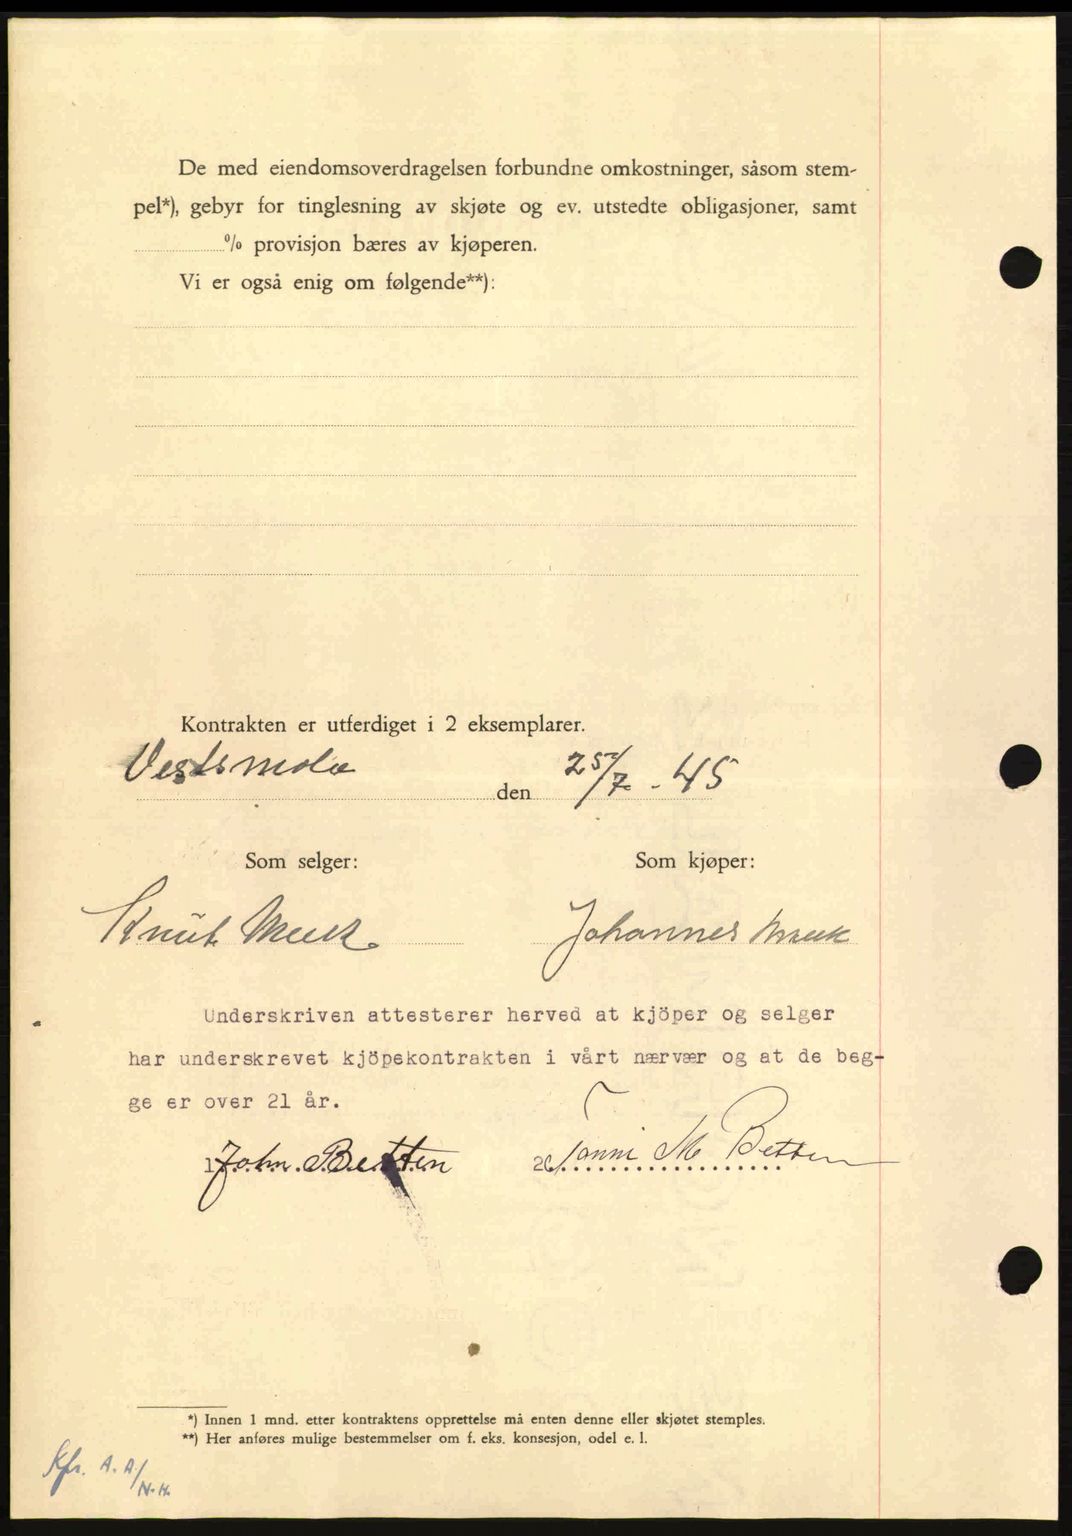 De med eiendomsoverdragelsen forbundne omkostninger, såsom stem-
pel*), gebyr for tinglesning av skjøte og ev. utstedte obligasjoner, samt
% provisjon bæres av kjøperen.
Vi er også enig om følgende**):
Kontrakten er utferdiget i 2 eksemplarer.
Vestsmøla den 25/7 - 45
Som selger: Som kjøper:
Knut Meek Johannes Meek
Underskriven attesterer herved at kjöper og selger
har underskrevet kjöpekontrakten i vårt nærvær og at de beg-
ge er over 21 år.
1 John. Betten 2 M Betten
*) Innen 1 mnd. etter kontraktens opprettelse må enten denne eller skjøtet stemples.
**) Her anføres mulige bestemmelser om f. eks. konsesjon, odel e. l.
Kfr. A.A/
N.H.